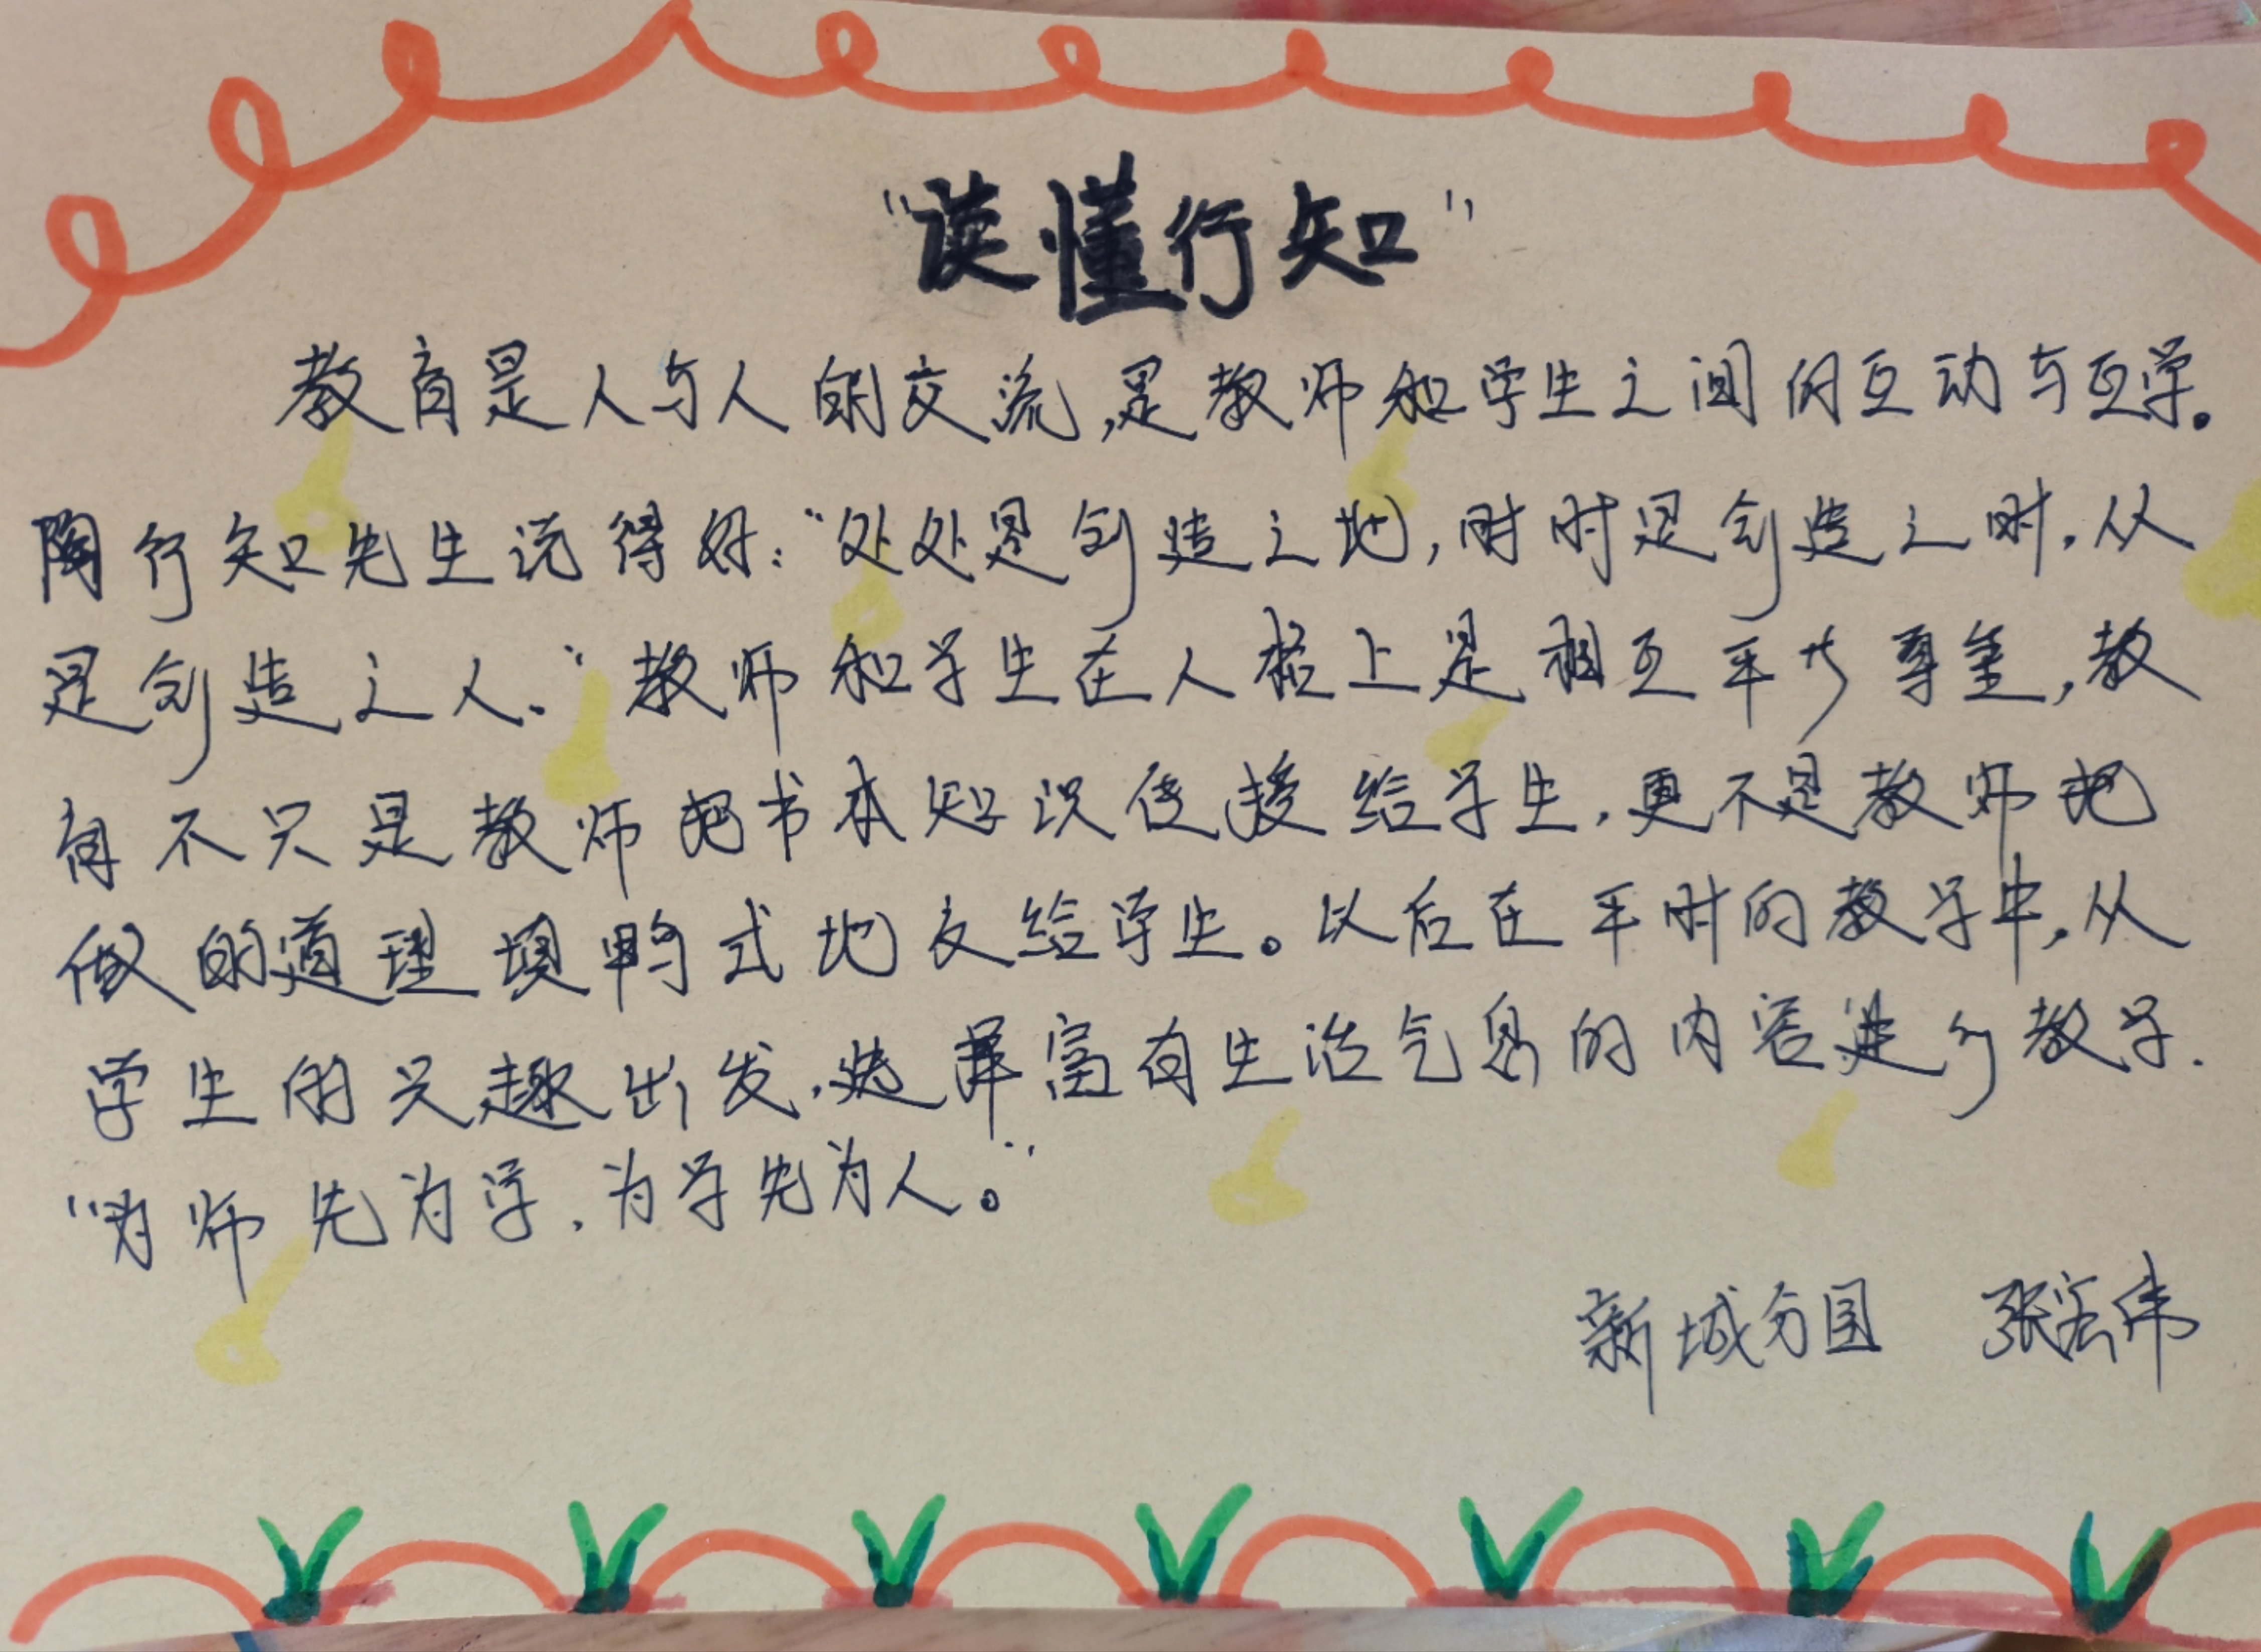 “读懂行知”
教育是人与人的交流,是教师和学生之间的互动与互学。
陶行知先生说得好:“处处是创造之地,时时是创造之时,从
是创造之人。”教师和学生在人格上是相互平步尊重,教
育不只是教师把书本知识传授给学生,更不是教师把
做的道理填鸭式地交给学生。以后在平时的教学中,从
学生的兴趣出发,选择富有生活气息的内容进行教学.
“为师先为学,为学先为人。”
新城分园 张宏伟